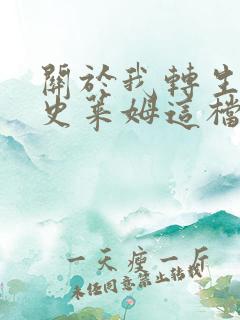 關於我轉生
史萊姆這檔
一天瘦一斤
未經同意禁止轉載